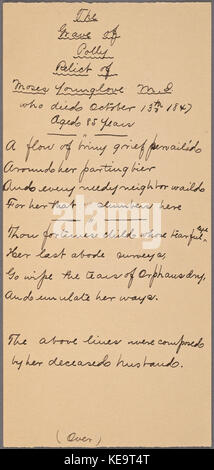 The
Grave of
Polly
Relict of
Moses Younglove M.D
who died October 13th 1847
Aged 85 years
A flow of briny grief prevailed
Around her parting bier
And every needy neighbor wailed
For her that slumbers here
Thou fortunes child whose tearful eye
Her last abode surveys,
Go wipe the tears of Orphans dry,
And emulate her ways.
The above lines were composed
by her deceased husband.
(Over)
alamy
Image ID: KE9T4T
www.alamy.com